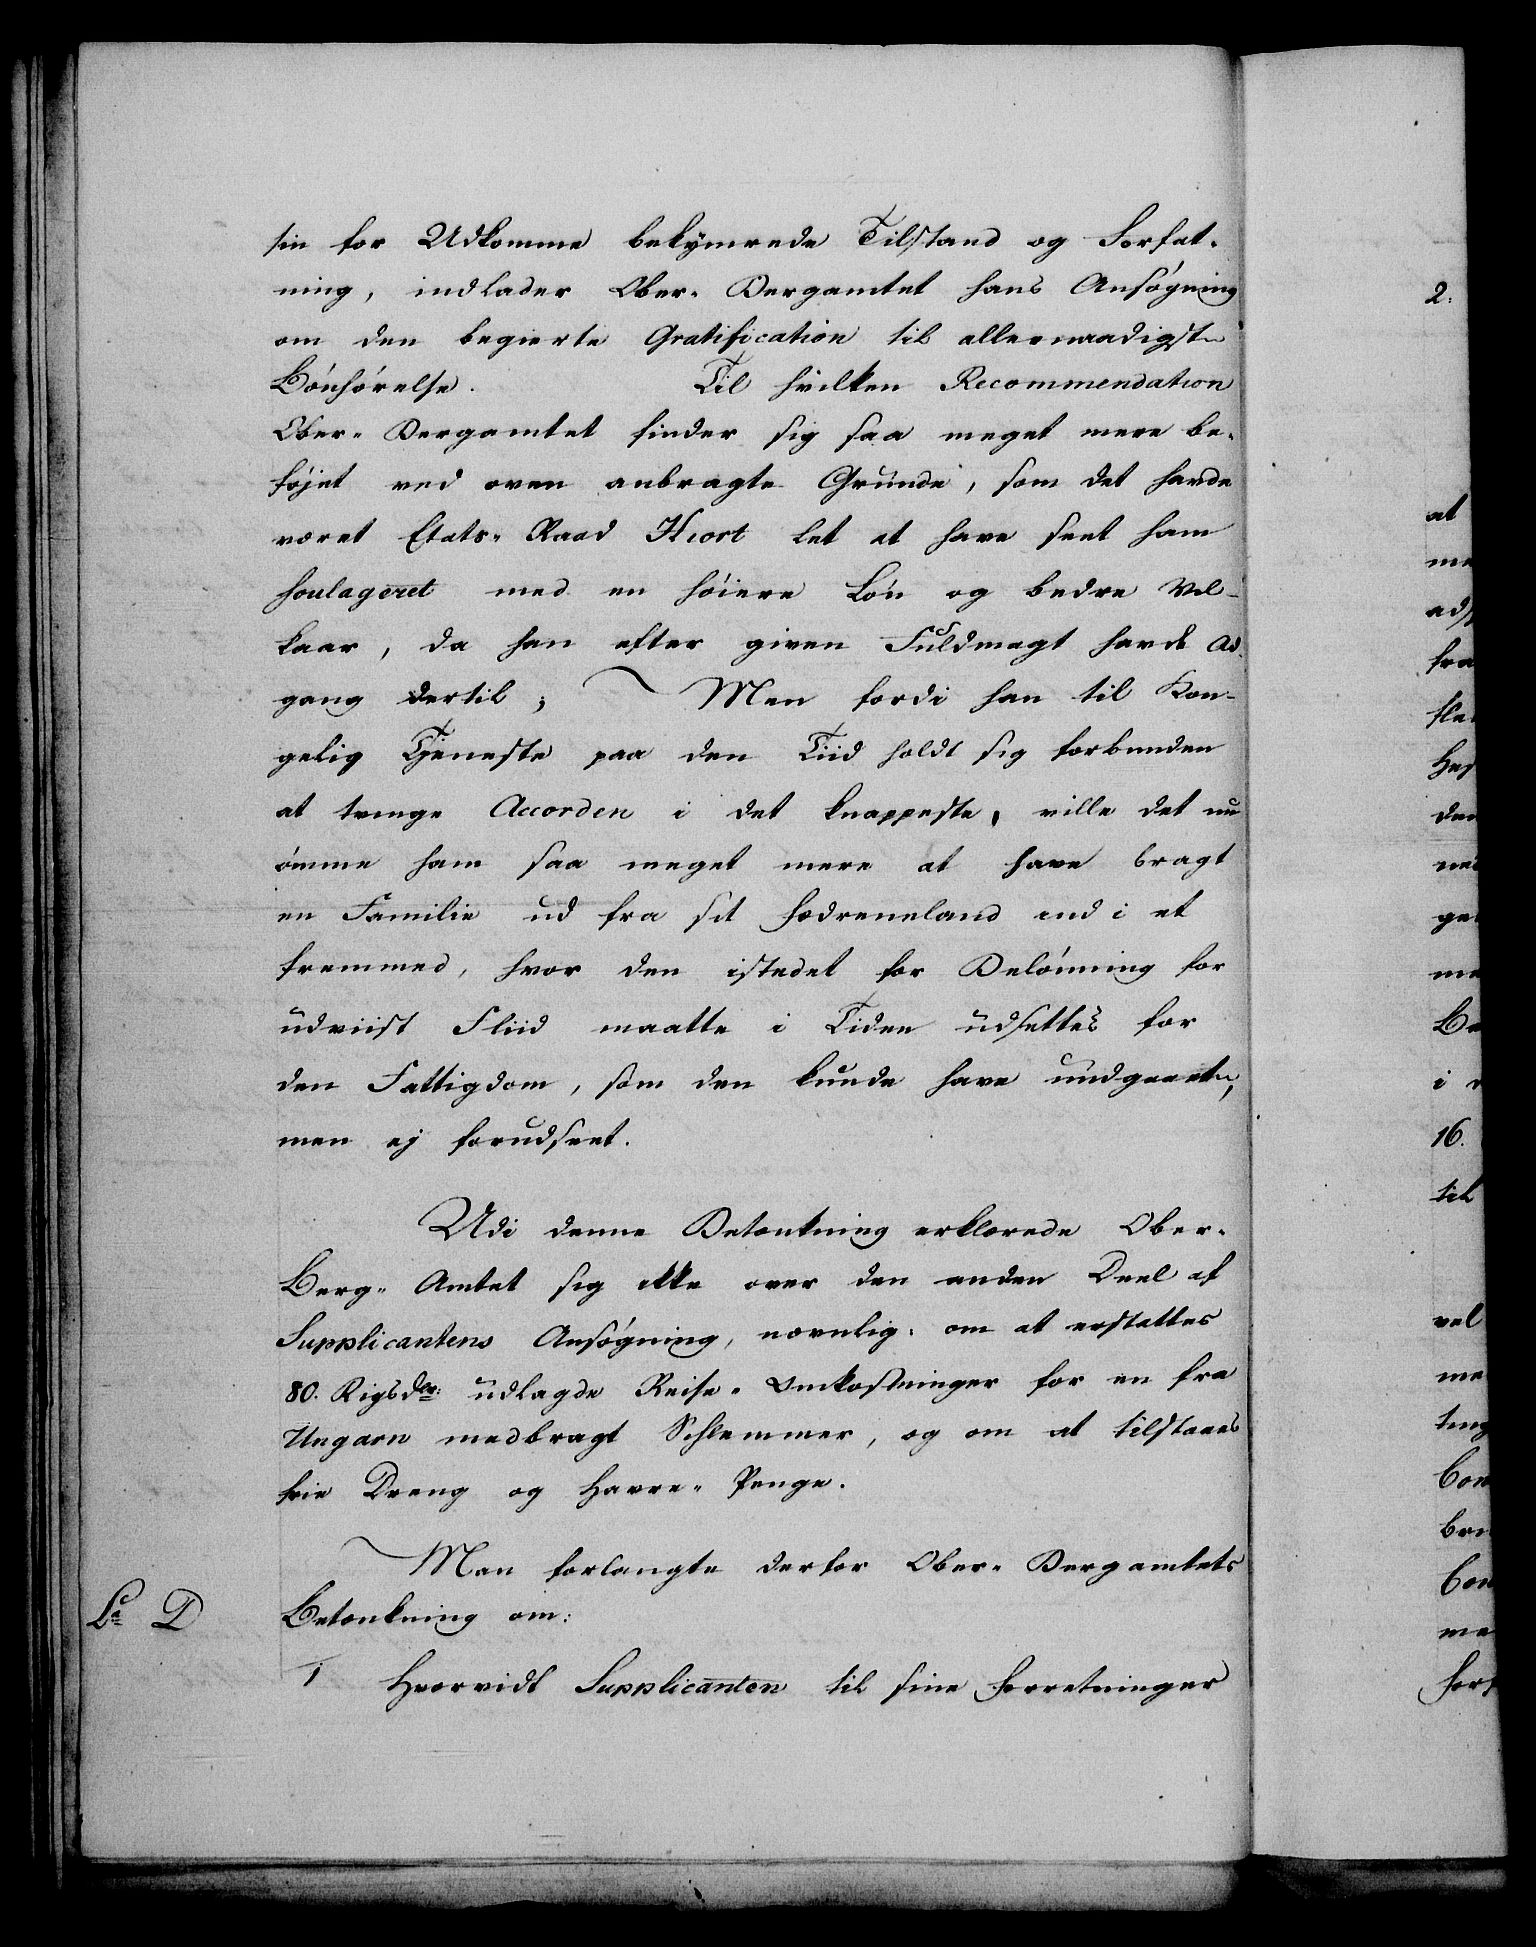 sin for Udkomme bekymrede Tilstand og Forfat-
ning, indlader Ober-Bergamtet hans Ansøgning
om den begierte Gratification til allernaadigste
Bønhørelse. Til hvilken Recommendation
Ober-Bergamtet finder sig saa meget mere be-
føjet ved oven anbragte Grunde, som det havde
været Etats-Raad Hiort let at have seet ham
soulageret med en høiere Løn og bedre Vel-
kaar, da han efter given Fuldmagt havde Ad-
gang dertil; Men fordi han til Kon-
gelig Tjeneste paa den Tiid holdt sig forbunden
at tvinge Accorden i det knappeste, ville det nu
ømme ham saa meget mere at have bragt
en Familie ud fra sit Fædreneland ind i et
fremmed, hvor den istedet for Belønning for
udviist Fliid maatte i Tiden udsettes for
den Fattigdom, som den kunde have undgaaet,
men ej forudseet.
Udi denne Betænkning erklærede Ober-
Berg-Amtet sig ikke over den anden Deel af
Supplicantens Ansøgning, nævnlig: om at erstattes
80. Rigsdlr: udlagde Reise-Omkostninger for en fra
Ungarn medbragt Schlemmer, og om at tilstaaes
frie Dreng og Havre-Penge.
Man forlangte derfor Ober-Bergamtets
La D Betænkning om:
1 Hvorvidt Supplicanten til sine Forretninger
2:
at
16.
til
vel